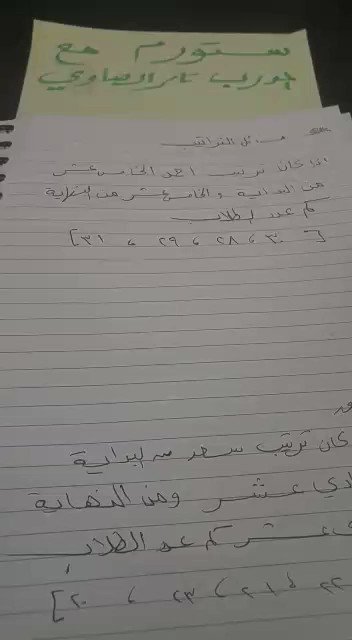 ستورم مع
مسائل التراتيب
اذا كان ترتيب احمد الخامس عشر
من البداية والخامس عشر من النهاية
كم عدد الطلاب
[٣٠ ، ٢٨ ، ٢٩ ، ٣١]
كان ترتيب سعد من البداية
ادي عشر ومن النهاية
عشر كم عدد الطلاب
٢٢ ، ٢١ ، ٢٣ ، ٢٠]